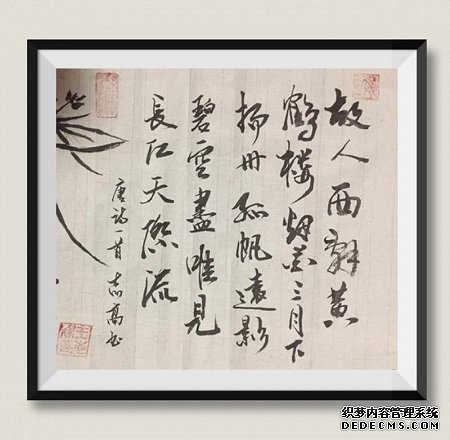 故人西辭黄
鶴楼烟花三月下
揚州孤帆遠影
碧雲盡唯見
長江天際流
唐詩一首 志高书
织梦内容管理系统
DEDECMS.COM